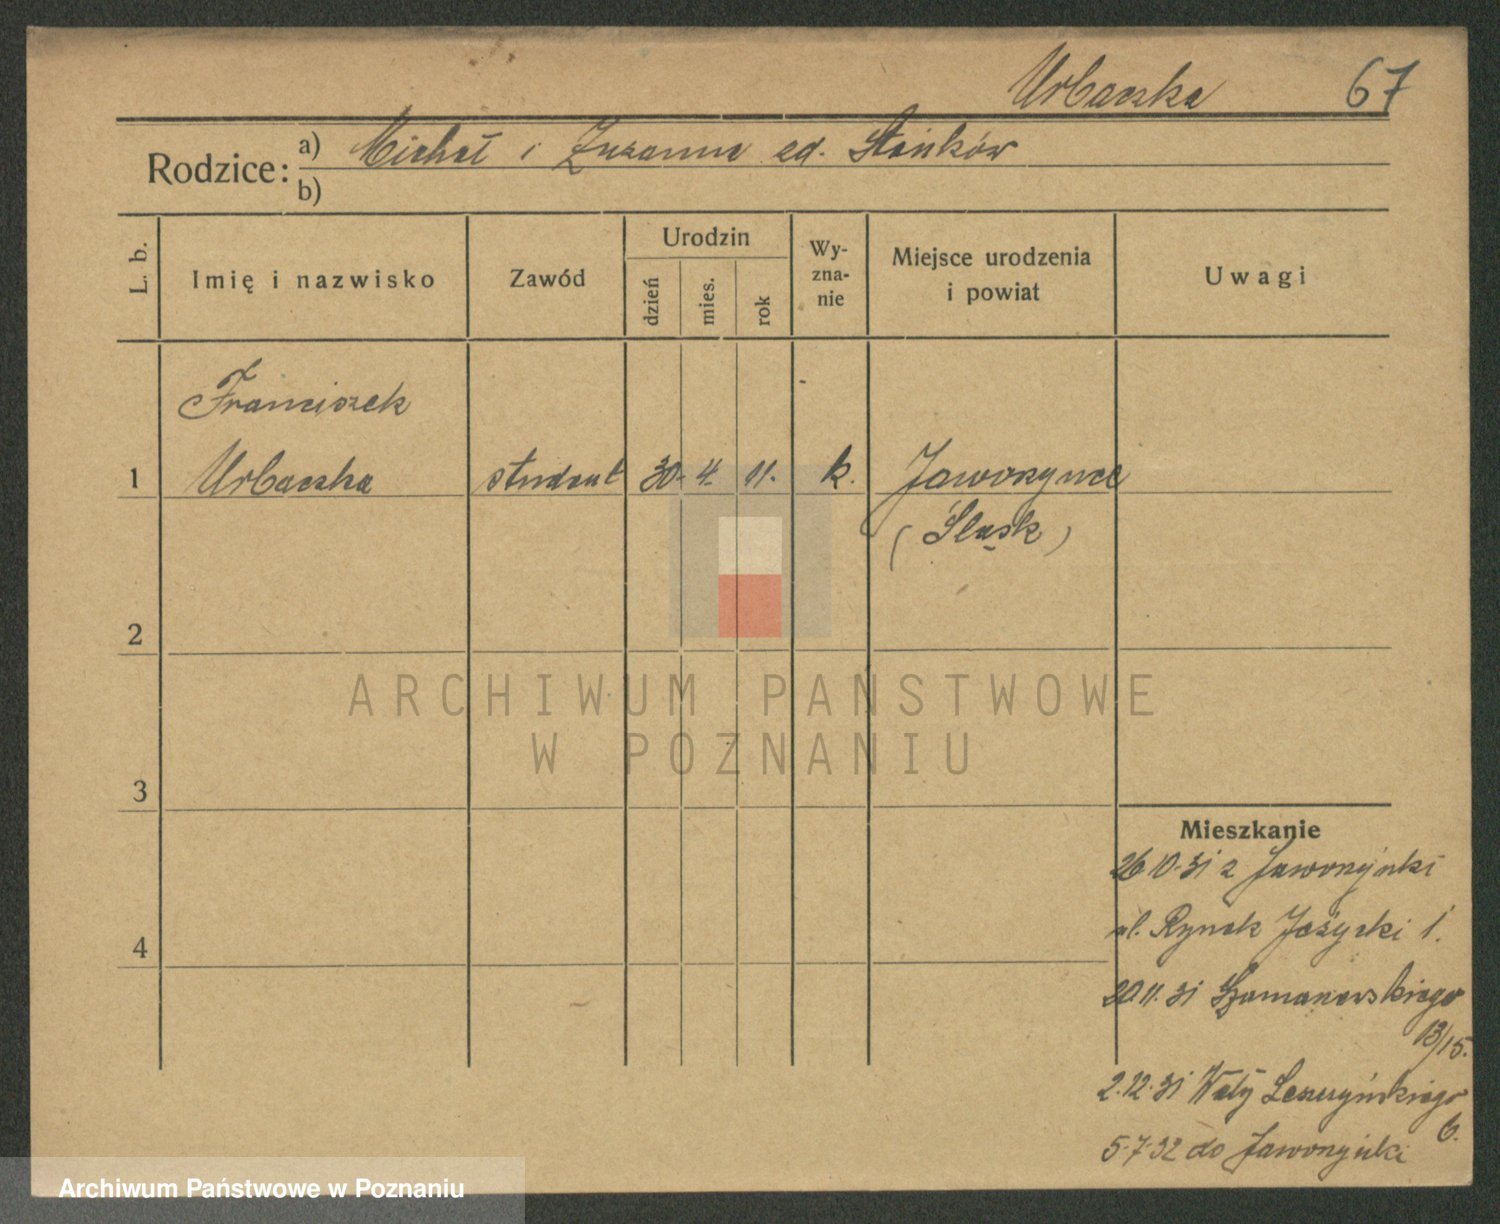 Urbaczka 67
Rodzice: a) Michał i Zuzanna zd.
b)
L. b.
Imię i nazwisko
Zawód
Urodzin
dzień
mies.
rok
Wy-
zna-
nie
Miejsce urodzenia
i powiat
Uwagi
Franciszek
1 Urbaczka student 30. 4. 11. k. Jaworzynce
(Śląsk)
2
3
4
ARCHIWUM PAŃSTWOWE
W POZNANIU
Mieszkanie
26.10.31 z Jaworzynki
ul. Rynek Jeżycki 1.
20.11.31 Szamarzewskiego
13/15.
2.12.31 Wały Leszczyńskiego
6.
5.7.32 do Jaworzynki
Archiwum Państwowe w Poznaniu